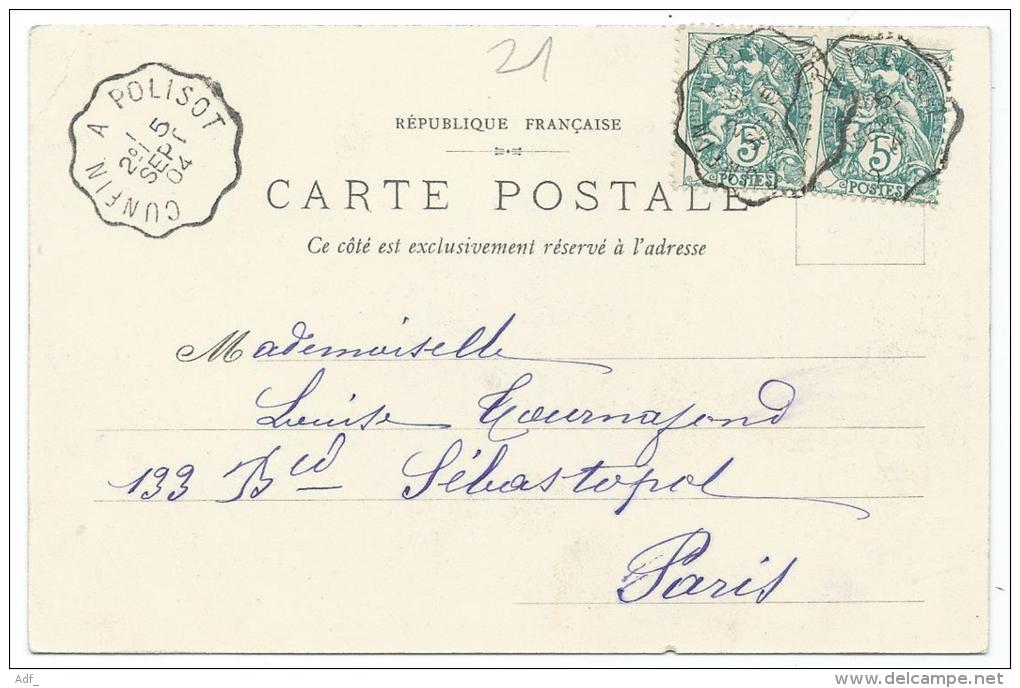 21
CUNFIN A POLISOT
2º/
5
SEPT
04
5
POSTES
5
POSTES
RÉPUBLIQUE FRANÇAISE
CARTE POSTALE
Ce côté est exclusivement réservé à l'adresse
Mademoiselle
Louise Tournafond
133 Bd Sébastopol
Paris
Adf_
www.delcampe.net